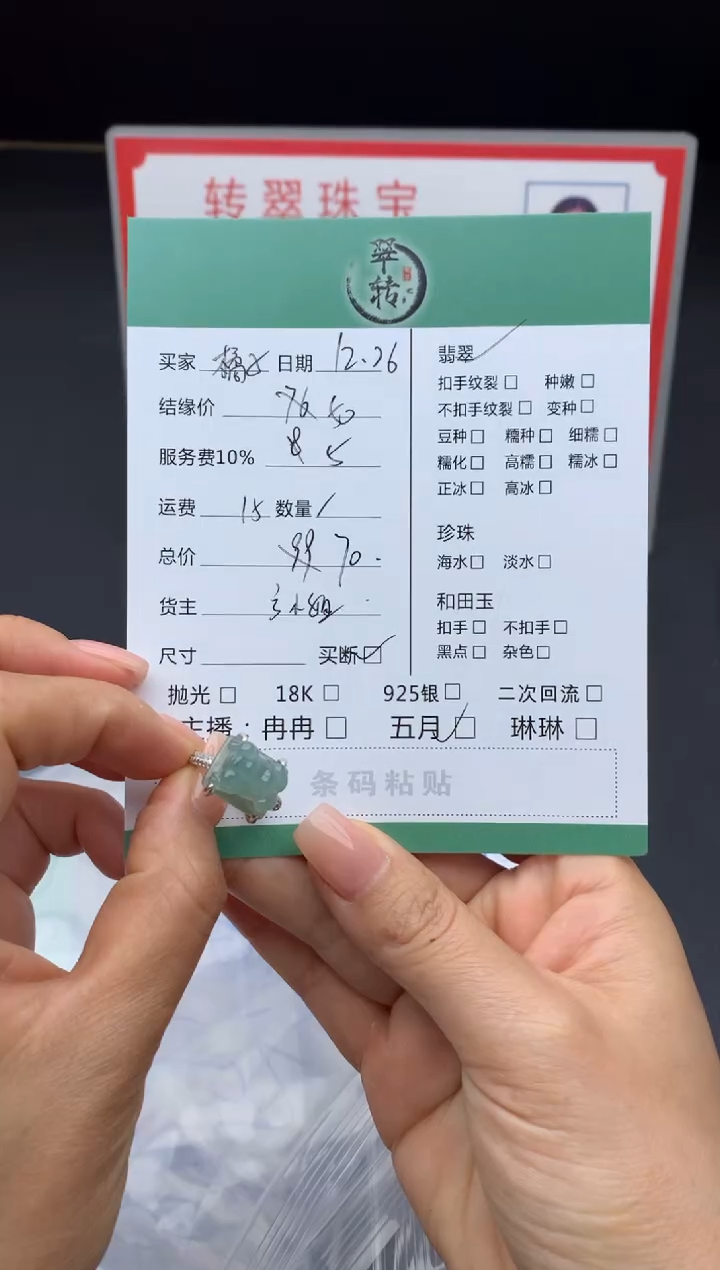 转翠珠宝
翠
转
买家 橘子 日期 12.26
结缘价 76 50
服务费10% 8 5
运费 15 数量 1
总价 99 70.
货主
尺寸 买断☑
翡翠✓
扣手纹裂□ 种嫩□
不扣手纹裂□ 变种□
豆种□ 糯种□ 细糯□
糯化□ 高糯□ 糯冰□
正冰□ 高冰□
珍珠
海水□ 淡水□
和田玉
扣手□ 不扣手□
黑点□ 杂色□
抛光□ 18K□ 925银□ 二次回流□
主播：冉冉□ 五月☑ 琳琳□
条码粘贴